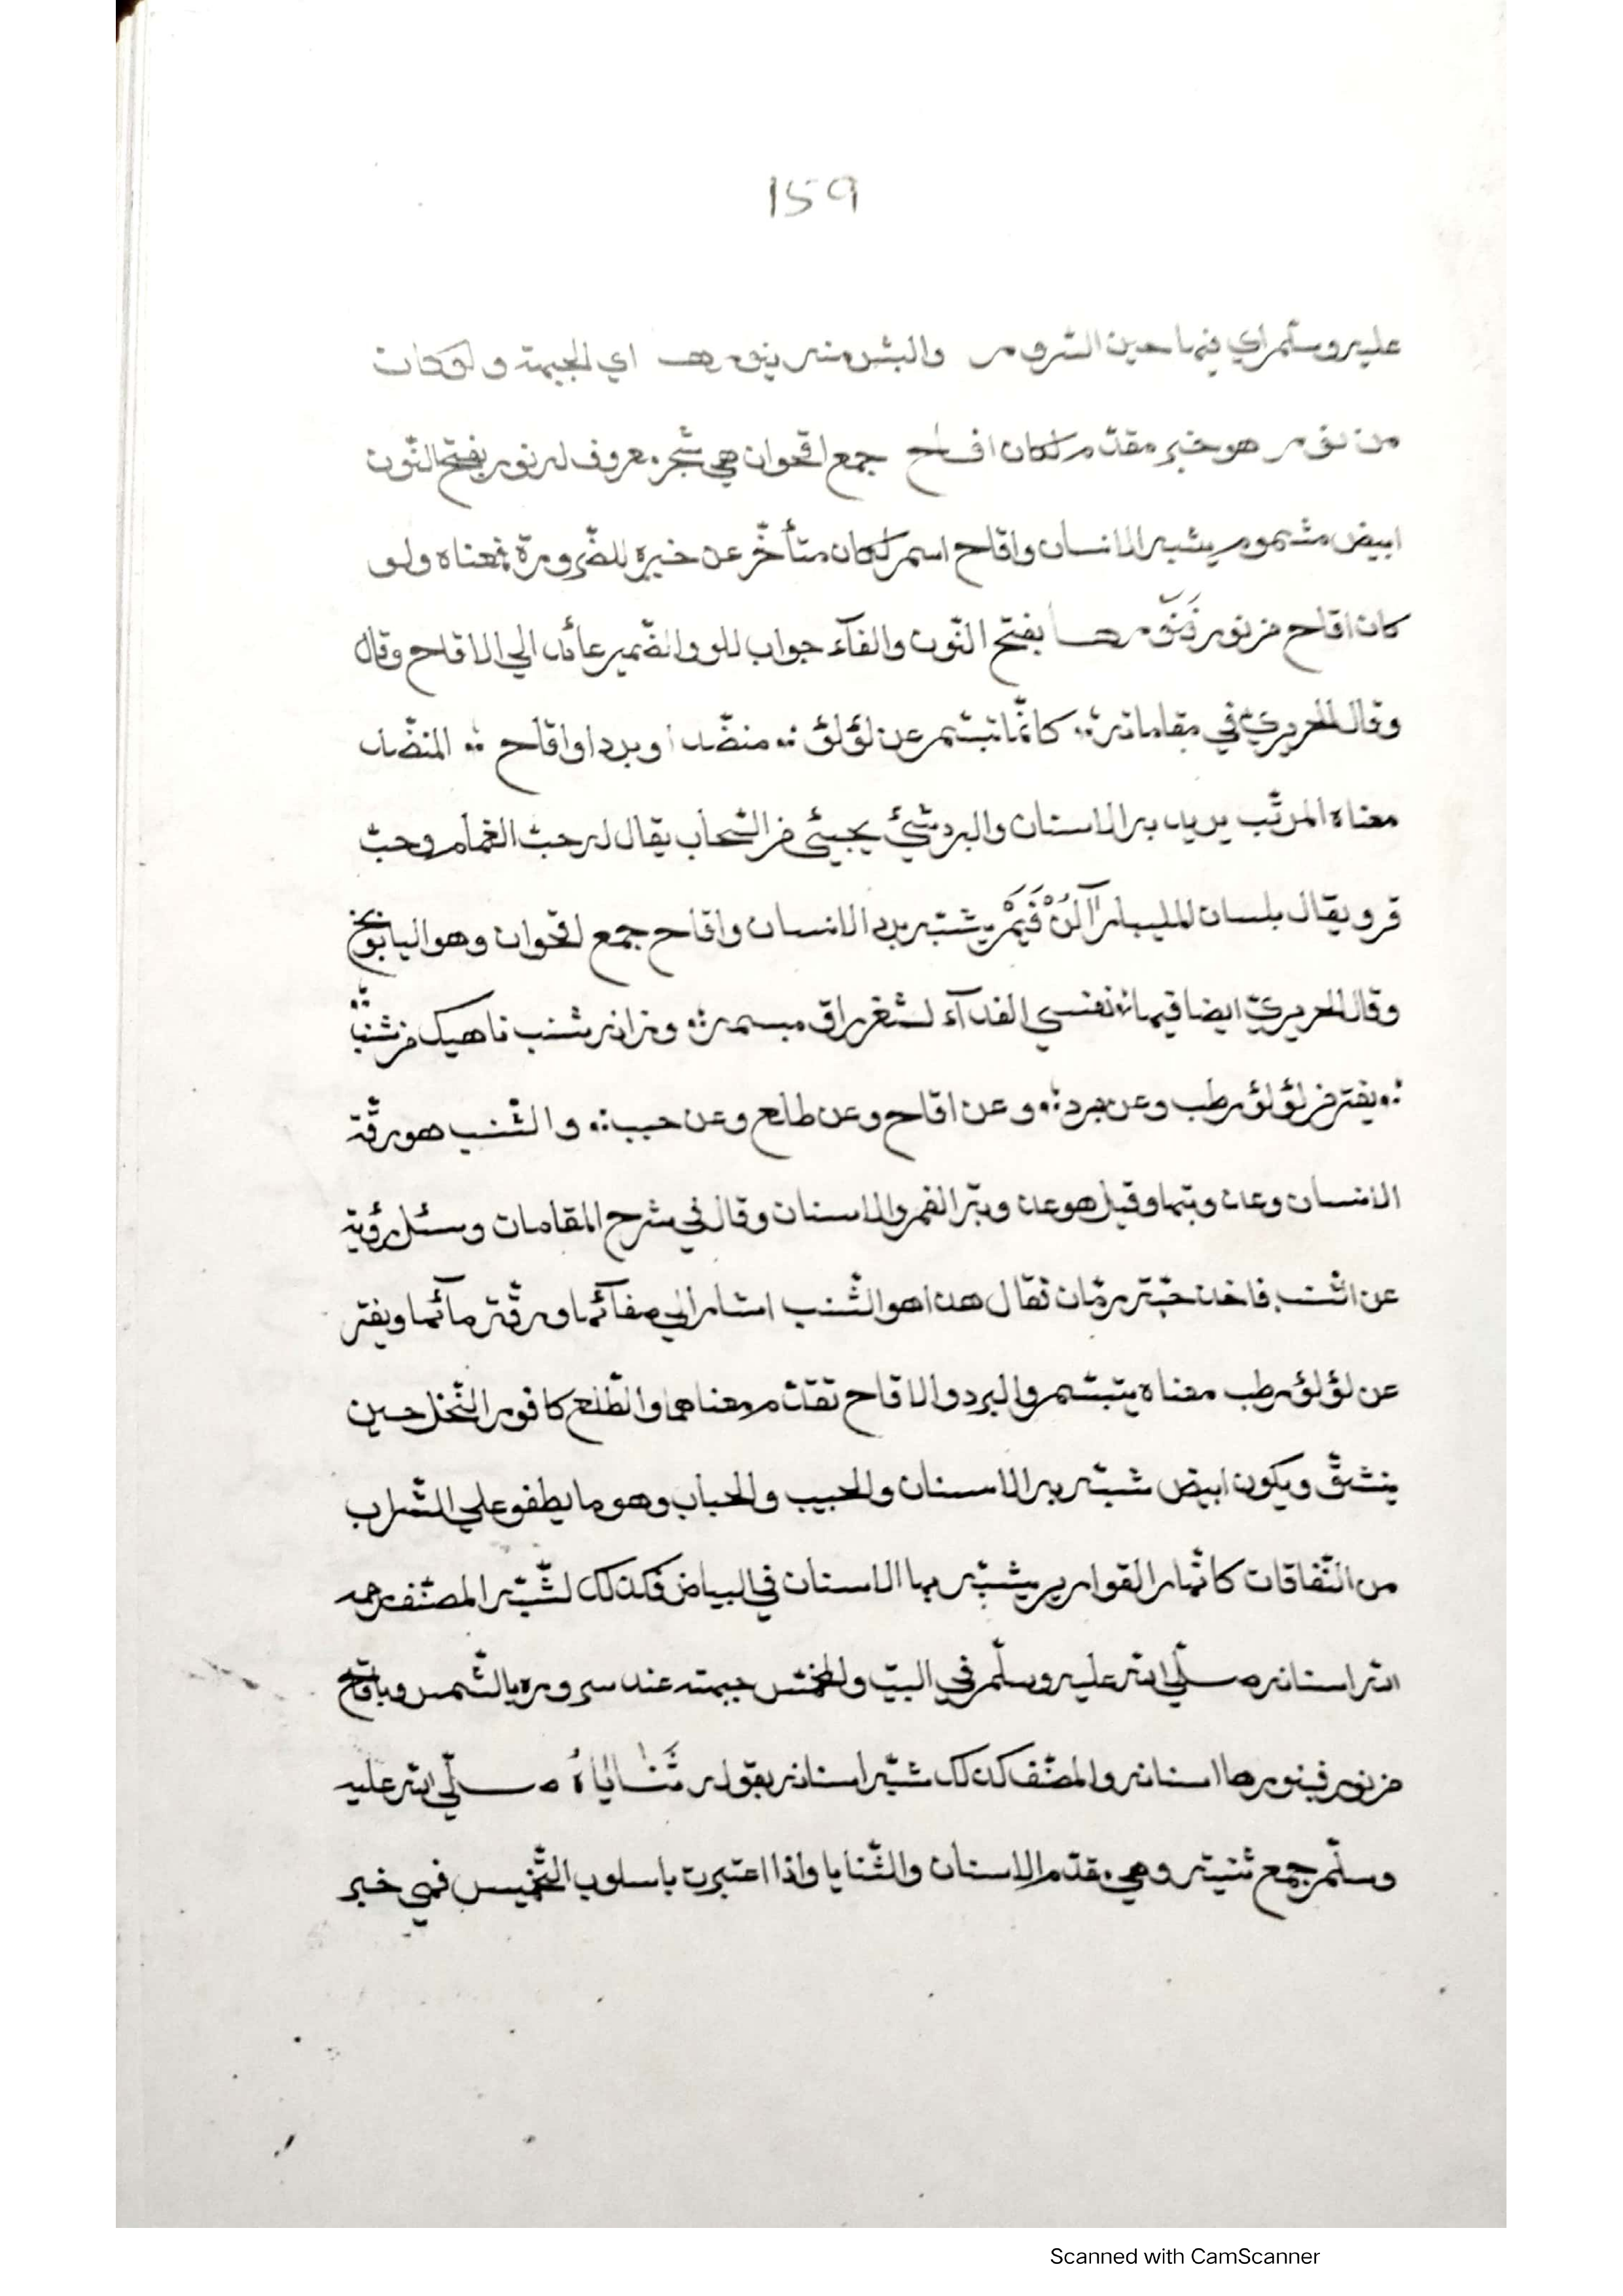 159
عليه وسلّم اي فيها حين السّرور والبشر منه ينورها اي الجبهة ولو كان
من نور هو خبر مقدّم لكان اقاح جمع اقحوان هي شجر معروف له نور بفتح النّون
ابيض مشموم يشبه الانسان واقاح اسم لكان متأخّر عن خبره للضّرورة فمعناه ولو
كان اقاح من نور فَنَوّرها بفتح النّون والفآء جواب للو والضّمير عائد الي الاقاح وقال
وقال الحريريّ في مقاماته كانّما تبسّم عن لؤلؤ منضّد او برد او اقاح المنضّد
معناه المرتّب يريد به الاسنان والبرد شيْئ يجيئ من السّحاب يقال له حبّ الغمام وحبّ
قر ويقال بلسان المليبار يشبّه به الانسان واقاح جمع اقحوان وهو اليابونج
وقال الحريريّ ايضا فيها نفسي الفدآء لثغر راق مبسمه وزانه شنب ناهيك من شنب
يفتر من لؤلؤ رطب وعن برد وعن اقاح وعن طلع وعن حبب والشّنب هو رقّة
الانسان وعذوبتها وقيل هو عذوبة الفم والاسنان وقال في شرح المقامات وسئل رؤبة
عن اشنب فاخذ حبّة رمّان فقال هذا هو الشّنب اشار الي صفآئها ورقّة مآئها ويفتر
عن لؤلؤ رطب معناه يتبسّم والبرد والاقاح تقدّم معناهما والطّلع كافور النّخل حين
ينشقّ ويكون ابيض شبّه به الاسنان والحبيب والحباب وهو ما يطفو علي الشّراب
من النّفاقات كانّها القوارير يشبّه بها الاسنان في البياض فكذلك لشّبّه المصنّف رحمه
الله اسنانه صلّي الله عليه وسلّم في البيت والمخمّس جبهته عند سروره بالشّمس وباقاح
من نور فينورها اسنانه والمصنّف كذلك شبّه اسنانه بقوله ثَنَاياهُ صلّي الله عليه
وسلّم جمع ثنيته وهي مقدّم الاسنان والثّنايا واذا اعتبرت باسلوب التّخميس فهي خبر
Scanned with CamScanner